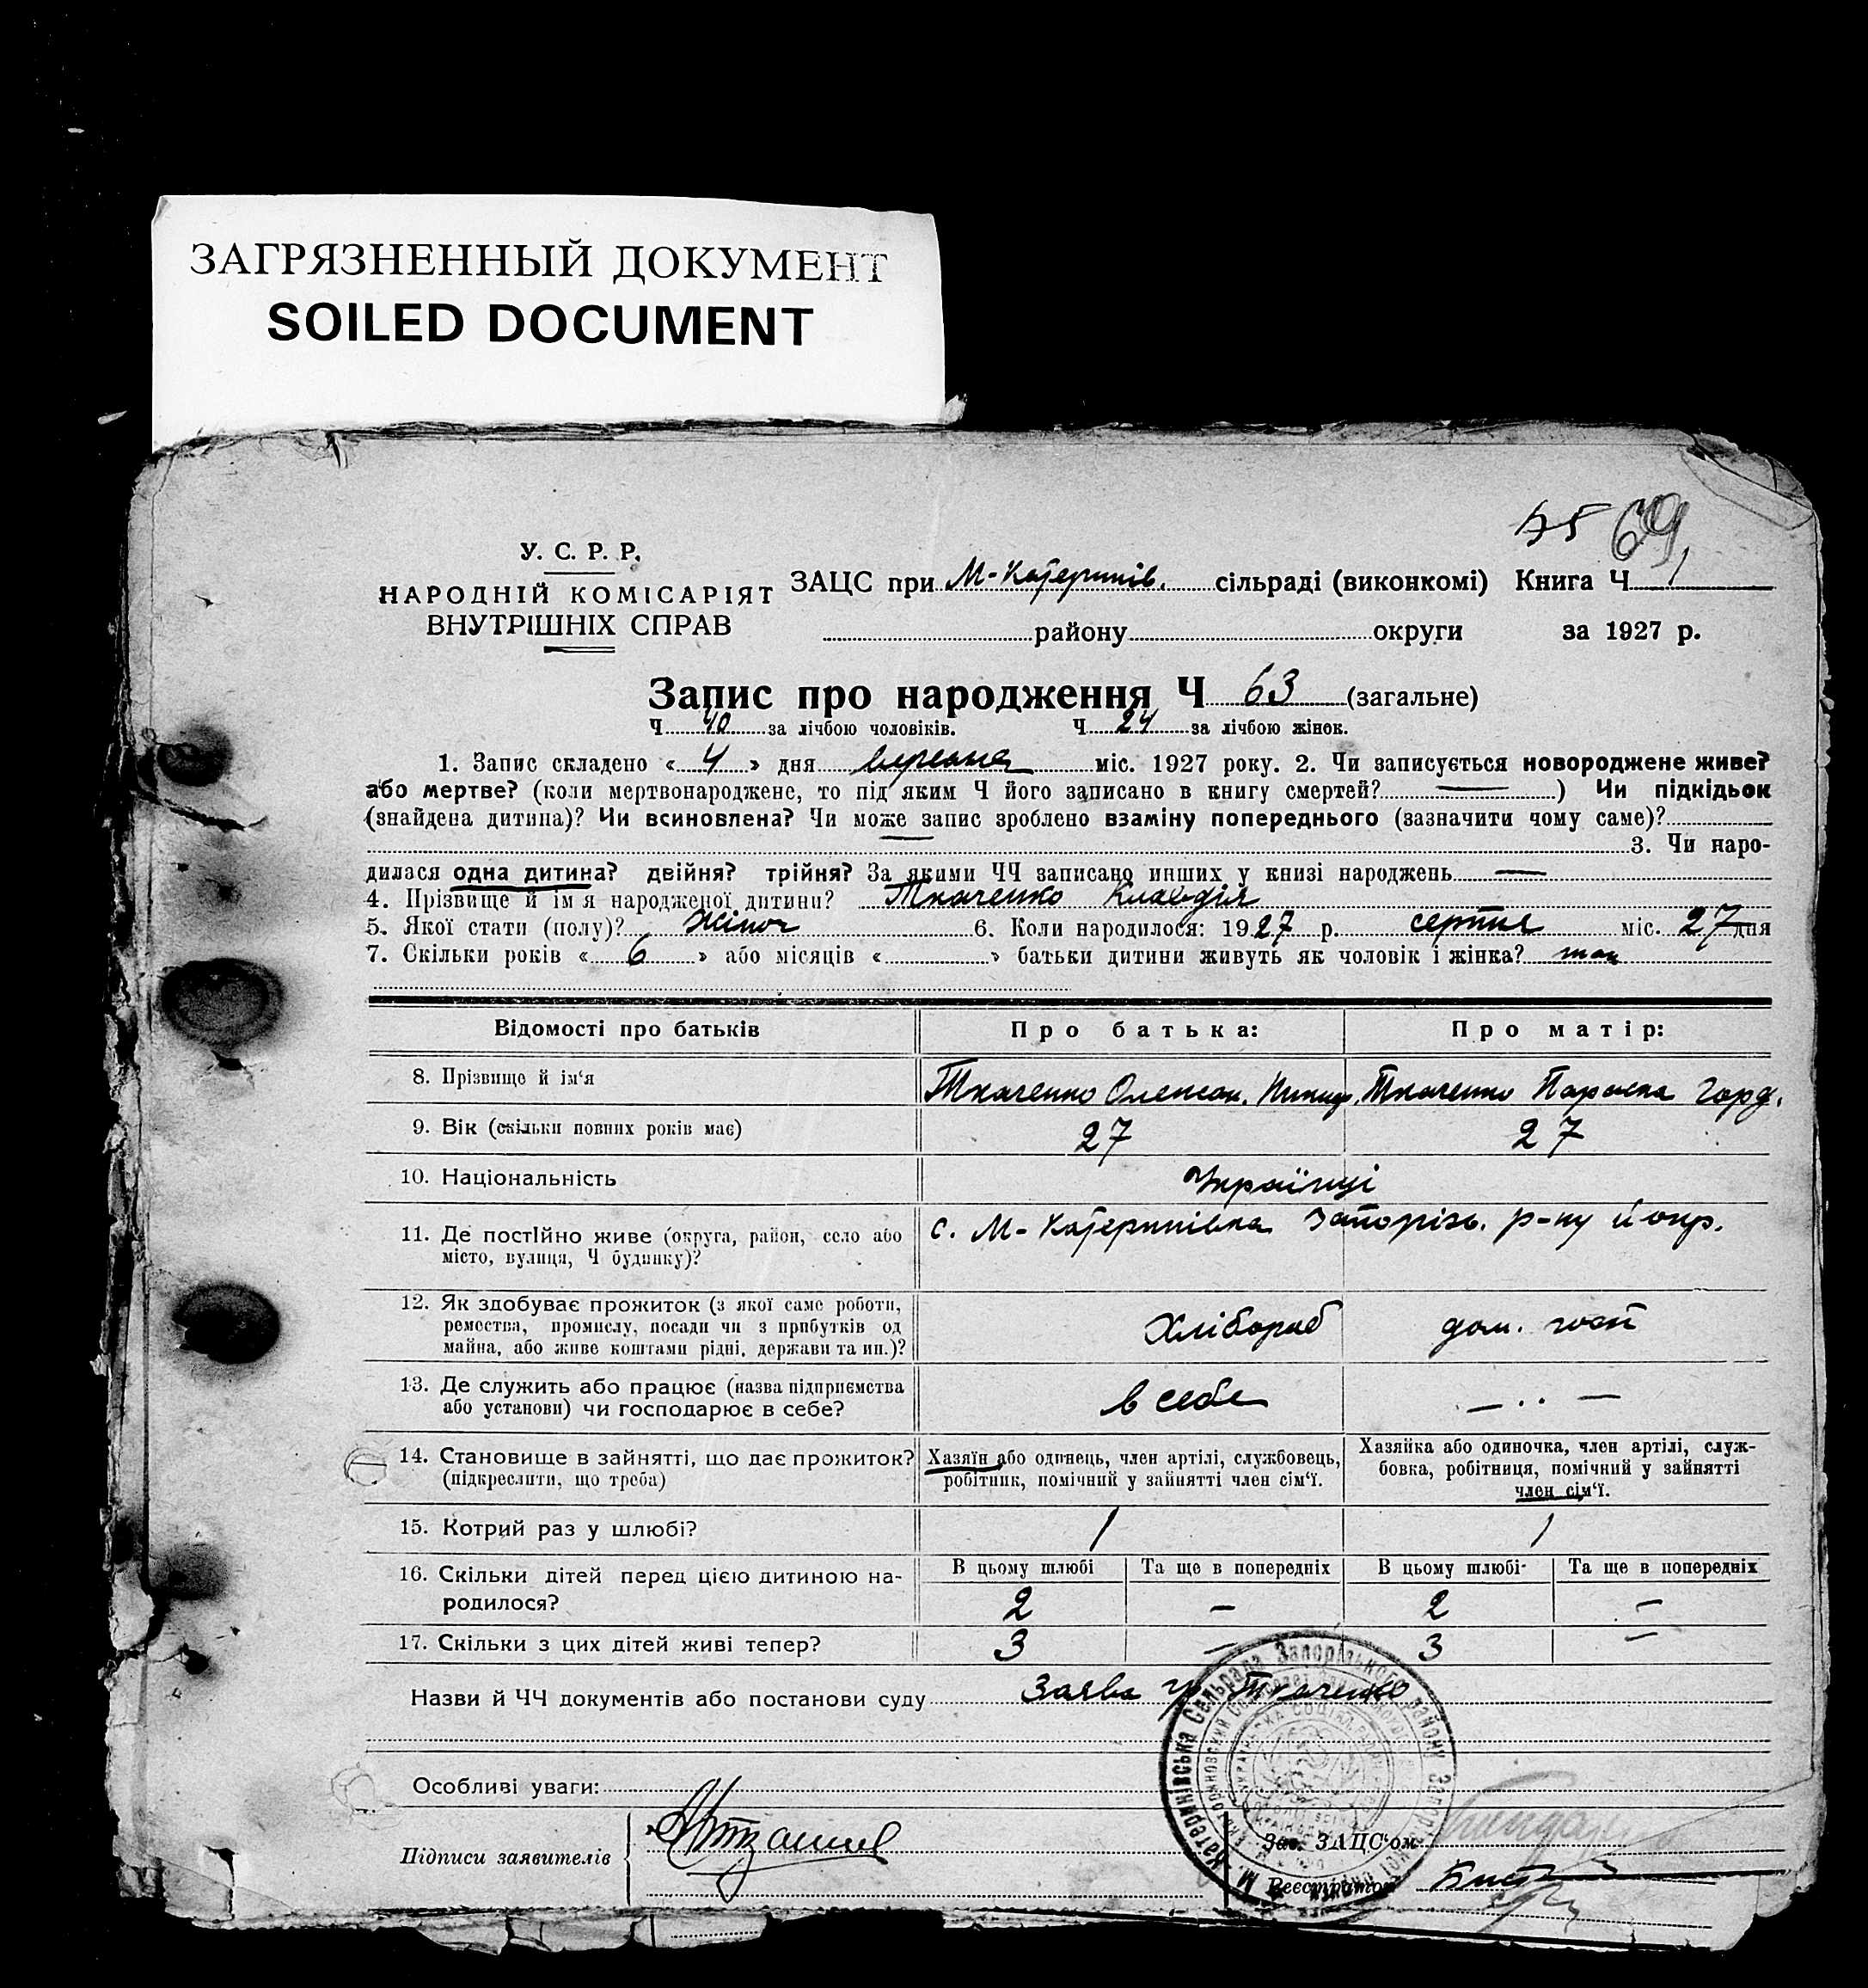 ЗАГРЯЗНЕННЫЙ ДОКУМЕНТ
SOILED DOCUMENT
69
У. С. Р. Р.
НАРОДНІЙ КОМІСАРІЯТ
ВНУТРІШНІХ СПРАВ
ЗАЦС при М-Катеринів. сільраді (виконкомі) Книга Ч 1
району округи за 1927 р.
Запис про народження Ч 63 (загальне)
Ч 40 за лічбою чоловіків. Ч 24 за лічбою жінок.
1. Запис складено « 4 » дня вересня міс. 1927 року. 2. Чи записується новороджене живе?
або мертве? (коли мертвонароджене, то під яким Ч його записано в книгу смертей? — ) Чи підкідьок
(знайдена дитина)? Чи всиновлена? Чи може запис зроблено взаміну попереднього (зазначити чому саме)?
— 3. Чи наро-
дилася одна дитина? двійня? трійня? За якими ЧЧ записано инших у книзі народжень —
4. Прізвище й ім'я народженої дитини? Ткаченко Клавдія
5. Якої стати (полу)? Жіноч 6. Коли народилося: 1927 р. серпня міс. 27 дня
7. Скільки років « 6 » або місяців « » батьки дитини живуть як чоловік і жінка? так
Відомості про батьків Про батька: Про матір:
8. Прізвище й ім‘я Ткаченко Олексан. Ткаченко Параска Горд.
9. Вік (скільки повних років має) 27 27
10. Національність Українці
11. Де постійно живе (округа, район, село або
місто, вулиця, Ч будинку)? с. М-Катеринівка Запорізь. р-ну й окр.
12. Як здобуває прожиток (з якої саме роботи,
ремества, промислу, посади чи з прибутків од
майна, або живе коштами рідні, держави та ин.)? Хлібороб дом. госп
13. Де служить або працює (назва підприємства
або установи) чи господарює в себе? в себе — ·· —
14. Становище в зайнятті, що дає прожиток?
(підкреслити, що треба)
Хазяїн або одинець, член артілі, службовець,
робітник, помічний у зайнятті член сім‘ї.
Хазяйка або одиночка, член артілі, служ-
бовка, робітниця, помічний у зайнятті
член сім‘ї.
15. Котрий раз у шлюбі? 1 1
16. Скільки дітей перед цією дитиною на-
родилося?
В цьому шлюбі Та ще в попередніх В цьому шлюбі Та ще в попередніх
2 — 2 —
17. Скільки з цих дітей живі тепер? 3 — 3 —
Назви й ЧЧ документів або постанови суду Заява гр. Ткаченко
М. Катеринівська Сельрада Запорізького району Запорізької округи
Особливі уваги:
Підписи заявителів
Зав. ЗАЦС‘ом
Реєстратор